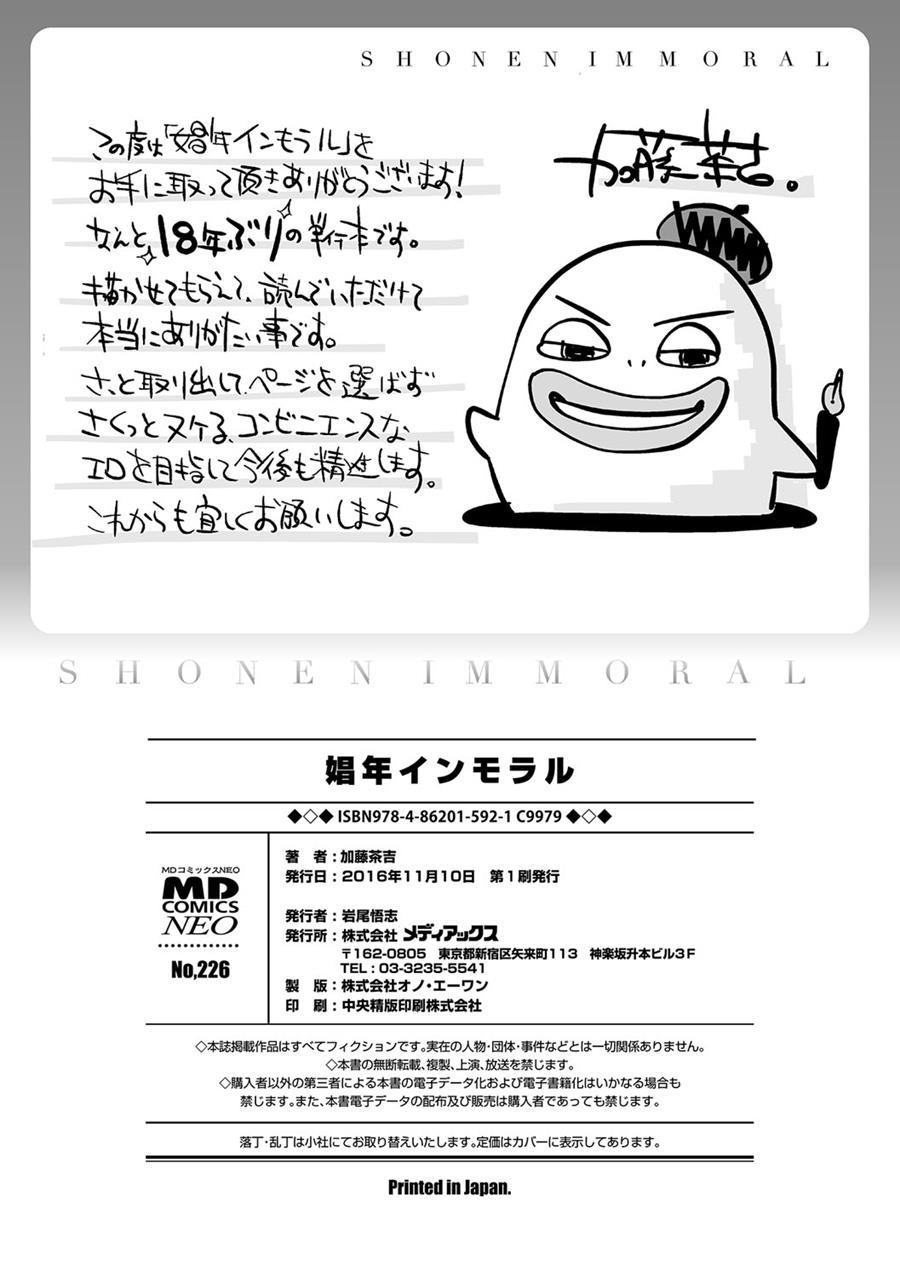 SHONEN IMMORAL
この度は「娼年インもラル」を
お手に取って頂きありがとうございます!
なんと18年ぶりの単行本です。
描かせてもらえて、読んでいただけて
本当にありがたい事です。
さっと取り出してページを選ばず
さくっとヌケる、コンビニエンスな
エロを目指して今後も精進します。
これからも宜しくお願いします。
加藤茶吉。
SHONEN IMMORAL
娼年インモラル
◆◇◆ ISBN978-4-86201-592-1 C9979 ◆◇◆
MDコミックスNEO
MD
COMICS
NEO
No,226
著 者：加藤茶吉
発行日：2016年11月10日 第1刷発行
発行者：岩尾悟志
発行所：株式会社 メディアックス
〒162-0805 東京都新宿区矢来町113 神楽坂升本ビル3F
TEL：03-3235-5541
製 版：株式会社オノ・エーワン
印 刷：中央精版印刷株式会社
◇本誌掲載作品はすべてフィクションです。実在の人物・団体・事件などとは一切関係ありません。
◇本書の無断転載、複製、上演、放送を禁じます。
◇購入者以外の第三者による本書の電子データ化および電子書籍化はいかなる場合も
禁じます。また、本書電子データの配布及び販売は購入者であっても禁じます。
落丁・乱丁は小社にてお取り替えいたします。定価はカバーに表示してあります。
Printed in Japan.